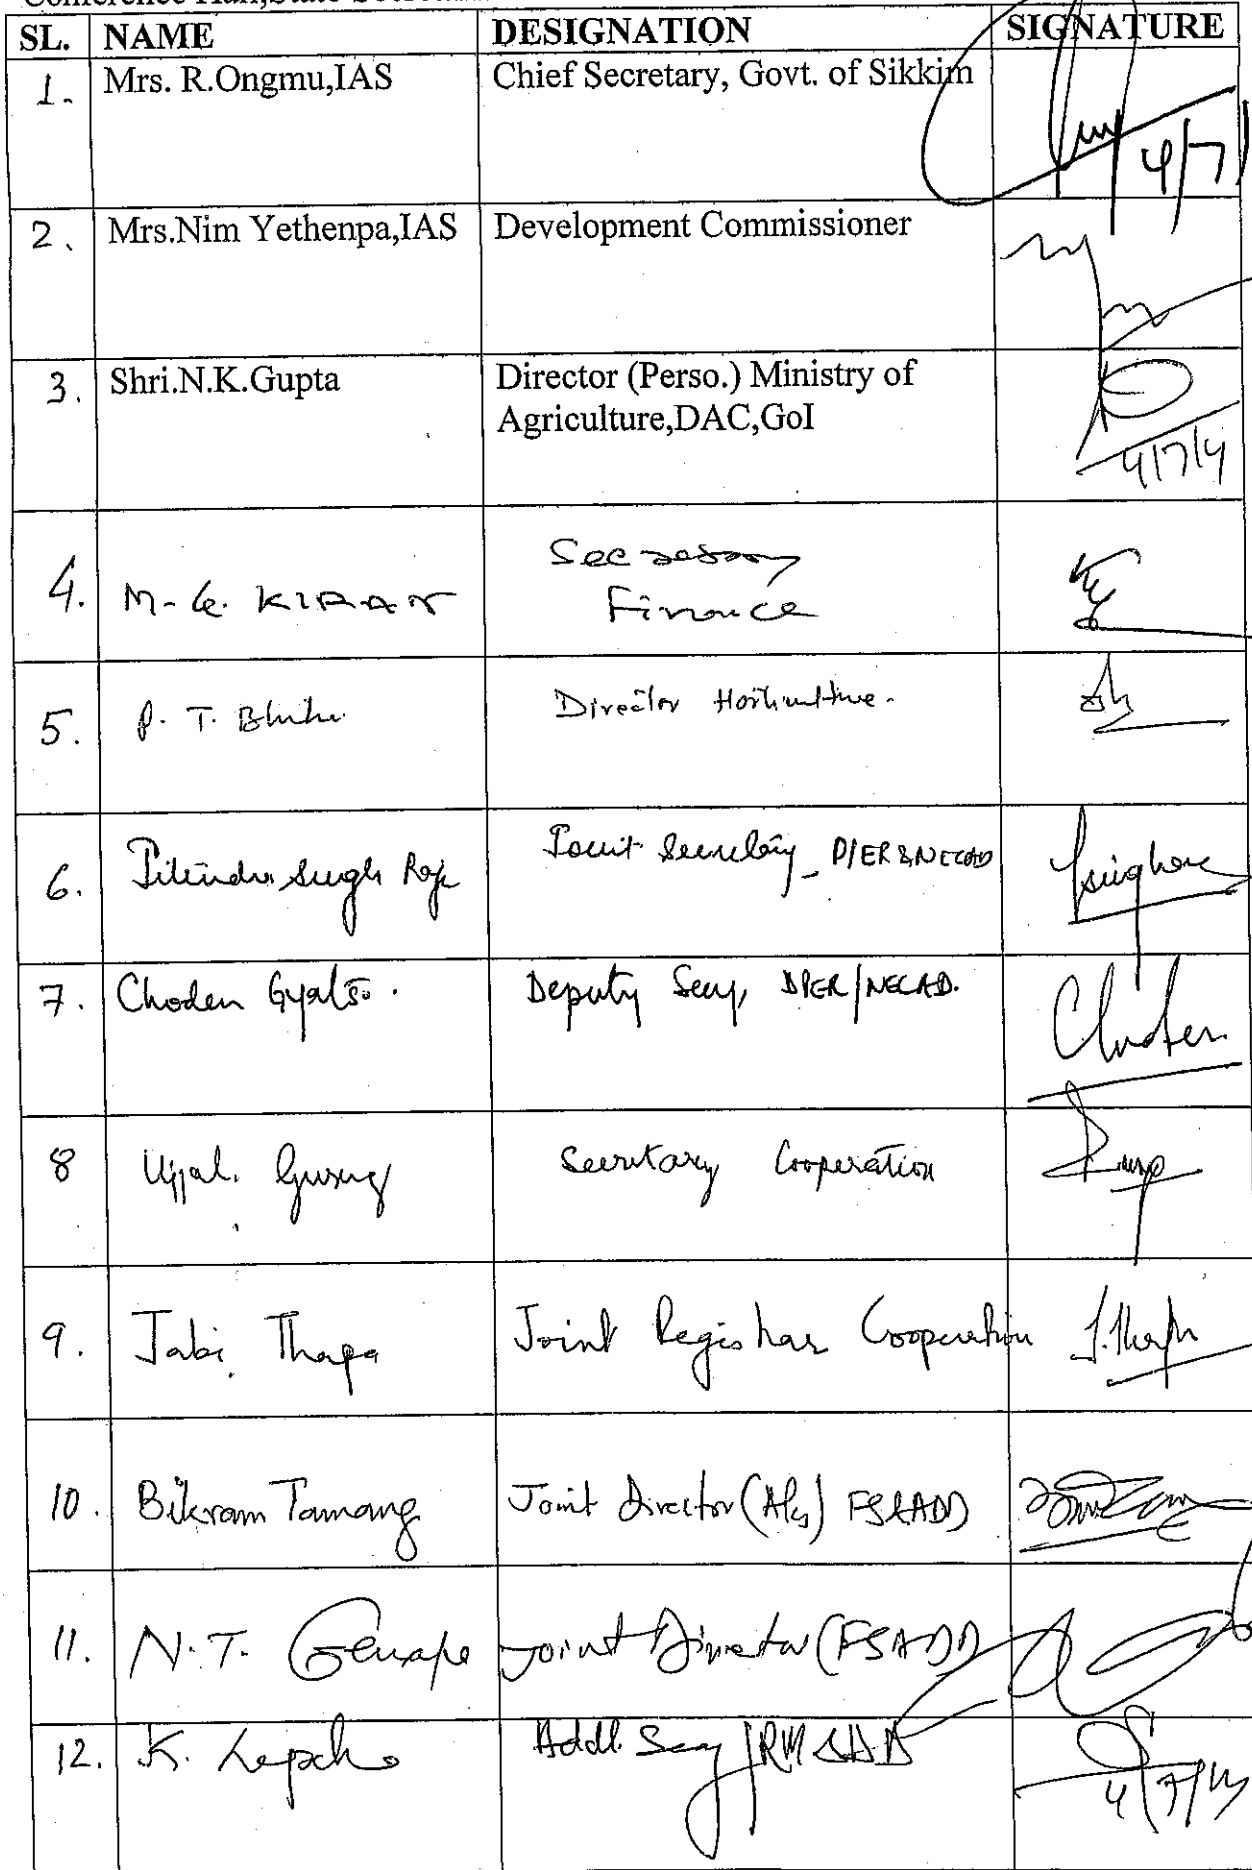 Conference Hall, State
SL. NAME DESIGNATION SIGNATURE
1. Mrs. R.Ongmu,IAS Chief Secretary, Govt. of Sikkim 4/7/
2. Mrs.Nim Yethenpa,IAS Development Commissioner
3. Shri.N.K.Gupta Director (Perso.) Ministry of
Agriculture,DAC,GoI 4/7/14
4. M. G. KIRAN Secretary
Finance
5. P. T. Bhutia Director Horticulture.
6. Singh Joint Secretary DPER & NECAD
7. Choden Gyatso. Deputy Secy, DPER/NECAD. Choden
8 Ujjal Gurung Secretary Cooperation
9. Jabi Thapa Joint Registrar Cooperation J.Thapa
10. Bikram Tamang Joint Director FS&ADD
11. N.T. Joint Director (FSADD)
12. K. Lepcha Addl. Secy 4/7/14